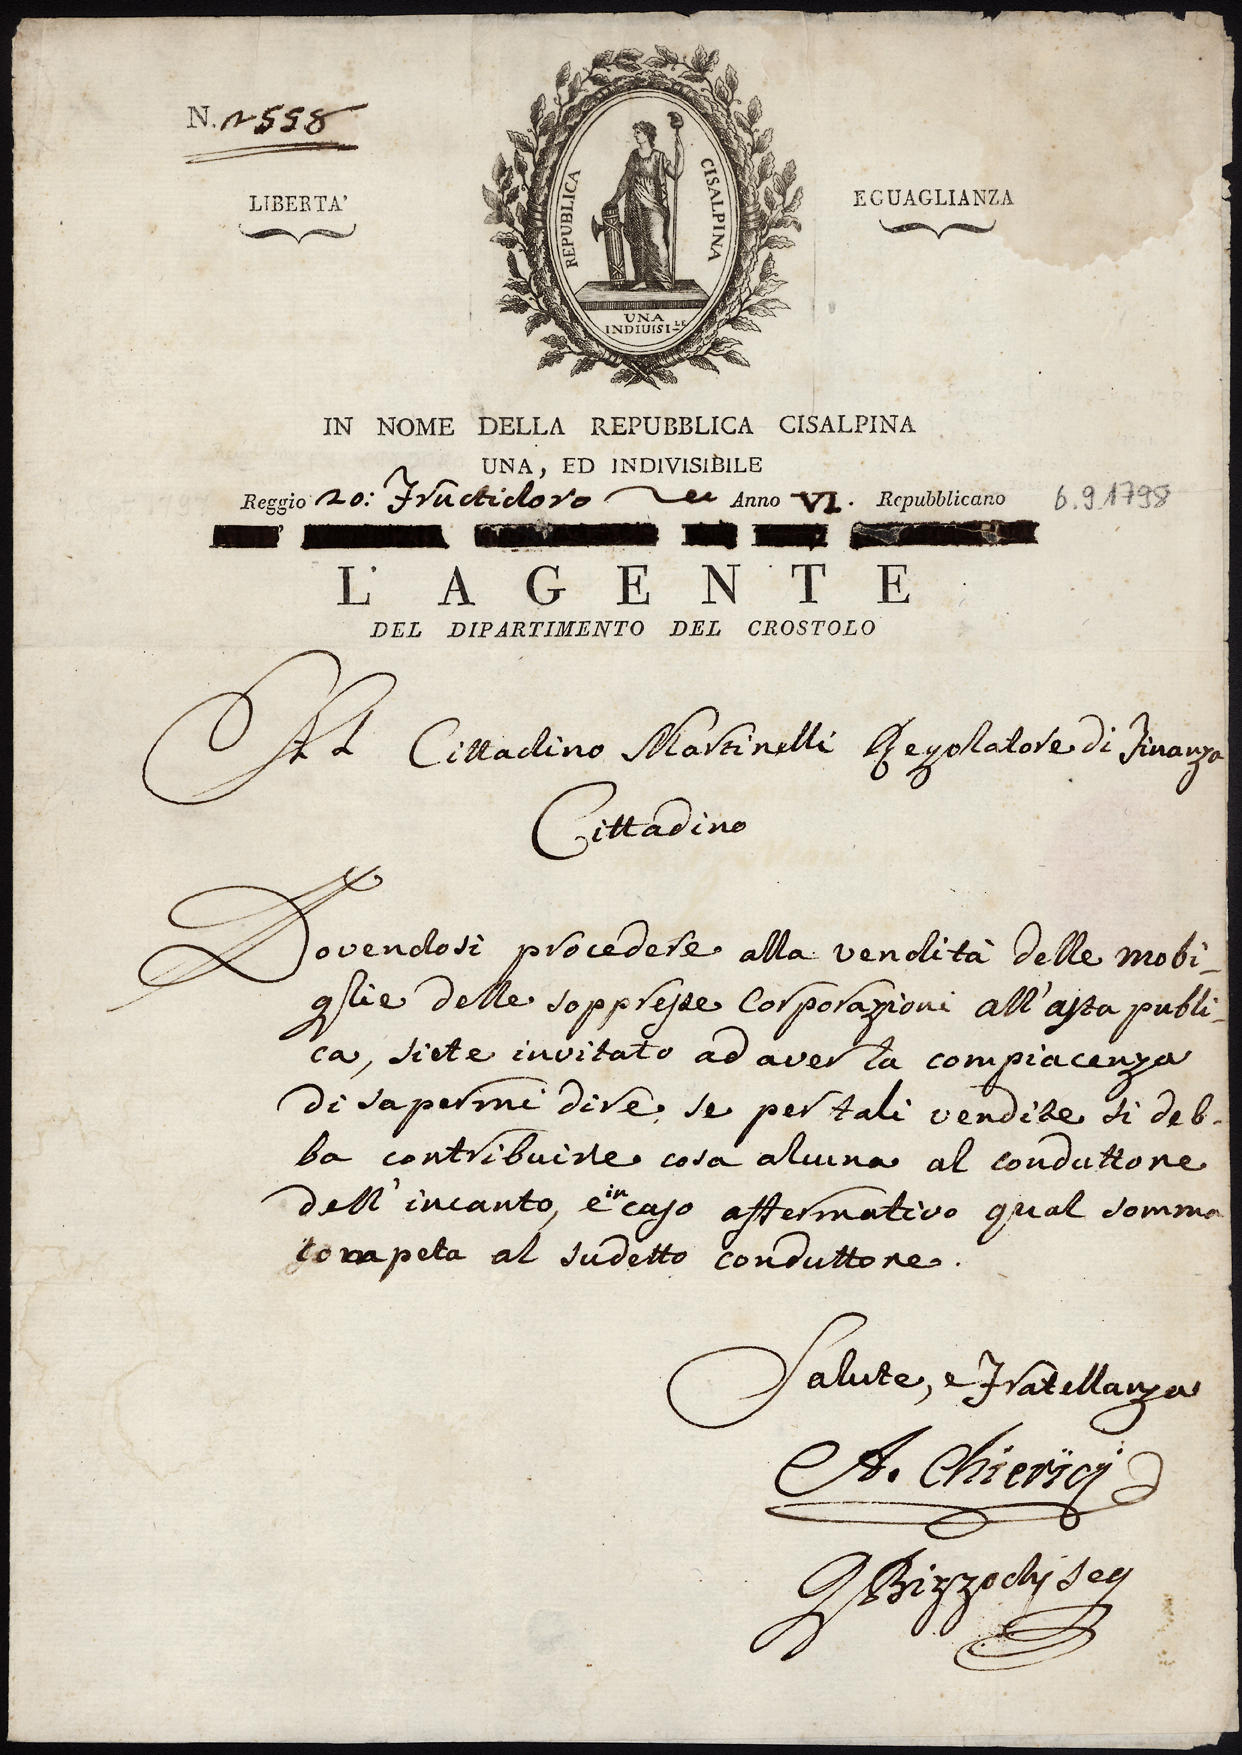 N. 2558
LIBERTA'
REPUBLICA CISALPINA
UNA
INDIUISI.LE
EGUAGLIANZA
IN NOME DELLA REPUBBLICA CISALPINA
UNA, ED INDIVISIBILE
Reggio 20: Fructidoro Anno VI. Repubblicano 6.9.1798
L'AGENTE
DEL DIPARTIMENTO DEL CROSTOLO
Al Cittadino Martinelli Regolatore di Finanza
Cittadino
Dovendosi procedere alla vendita delle mobi-
glie delle soppresse Corporazioni all'asta publi-
ca, siete invitato ad aver la compiacenza
di sapermi dire, se per tali vendite si deb-
ba contribuire cosa alcuna al conduttore
dell'incanto, e in caso affermativo qual somma
competa al sudetto conduttore.
Salute, e Fratellanza
A. Chierici
Bizzochj Seg